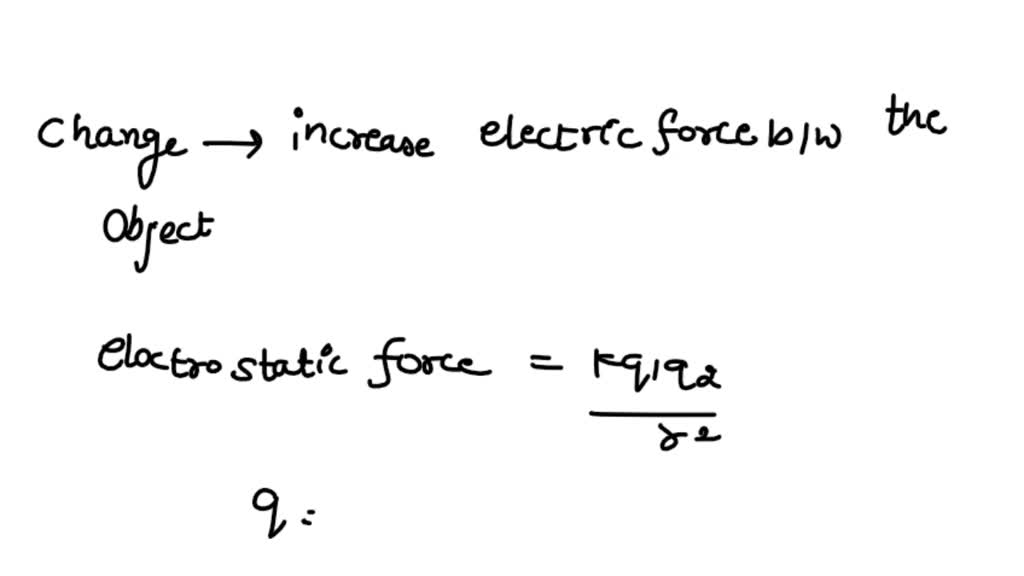 Change → increase electric force b/w the
Object
electrostatic force = kq1q2
r2
q =